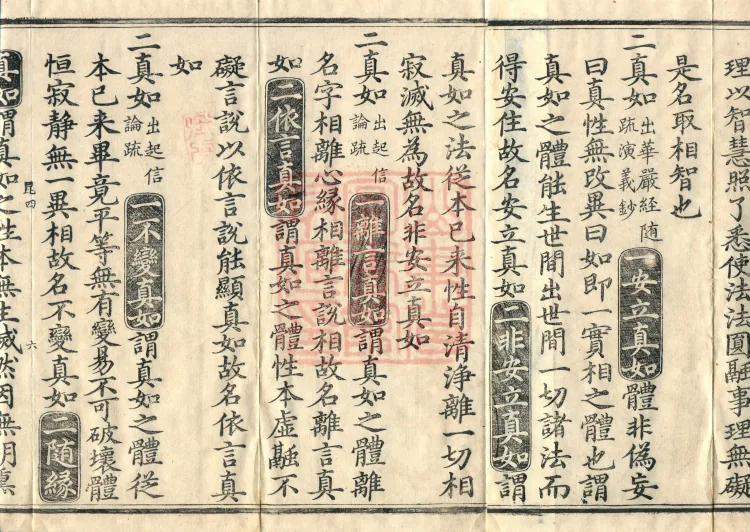 理以智慧照了悉使法法圓融事理無礙
是名取相智也
二真如出華嚴經隨疏演義鈔一安立真如體非偽妄
曰真性無改異曰如即一實相之體也謂
真如之體能生世間出世間一切諸法而
得安住故名安立真如二非安立真如謂
真如之法從本已来性自清淨離一切相
寂滅無為故名非安立真如
二真如出起信論疏一離言真如謂真如之體離
名字相離心緣相離言說相故名離言真
如二依言真如謂真如之體性本虛融不
礙言說以依言說能顯真如故名依言真
如
二真如出起信論疏一不變真如謂真如之體從
本已来畢竟平等無有變易不可破壞體
恒寂靜無一異相故名不變真如二隨緣
昆四
六
真如謂真如之性本無生滅然因無明熏